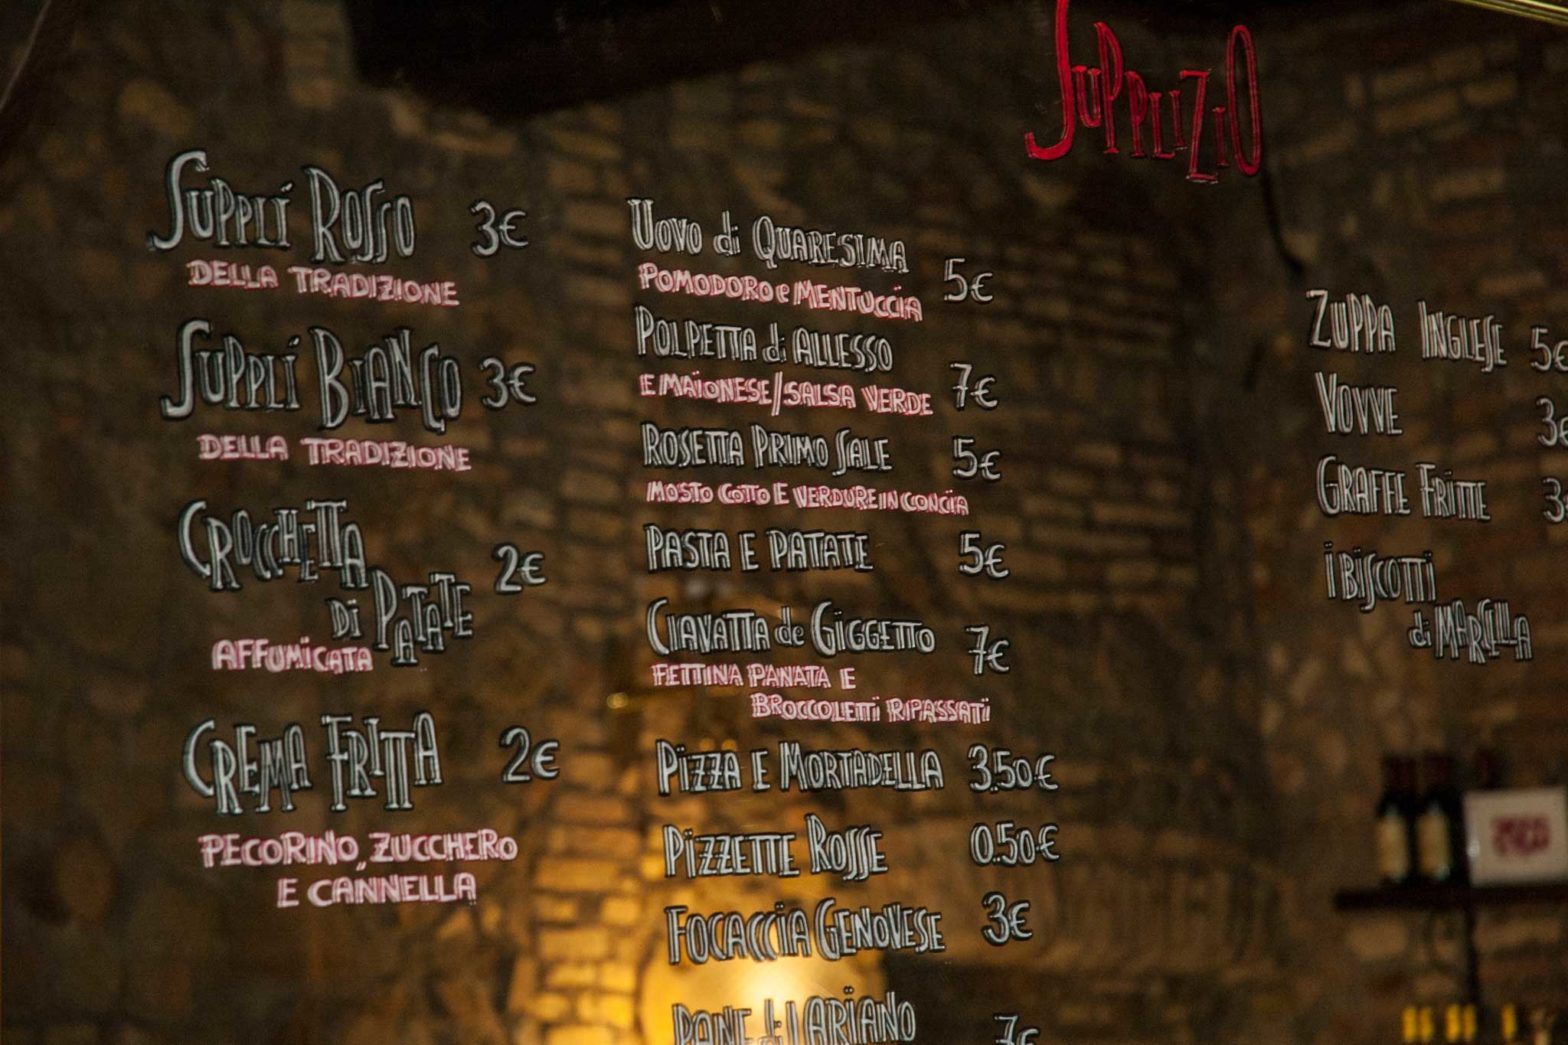 Supplizio
Supplì Rosso 3€
della tradizione
Supplì Bianco 3€
della tradizione
Crocchetta 2€
di Patate
affumicata
Crema Fritta 2€
pecorino, zucchero
e cannella
Uovo di Quaresima
pomodoro e mentuccia 5€
Polpetta di Allesso
e maionese/salsa verde 7€
Rosetta Primo Sale 5€
mosto coto e verdure in concia
Pasta e Patate 5€
Ciavatta de Giggetto 7€
fettina panata e
broccoletti ripassati
Pizza e Mortadella 3.50€
Pizzette Rosse 0.50€
Focaccia Genovese 3€
Pane di Lariano 7€
Zuppa Inglese 5€
Vovve 3€
Graffe Fritte 3€
I Biscotti
di Marilla